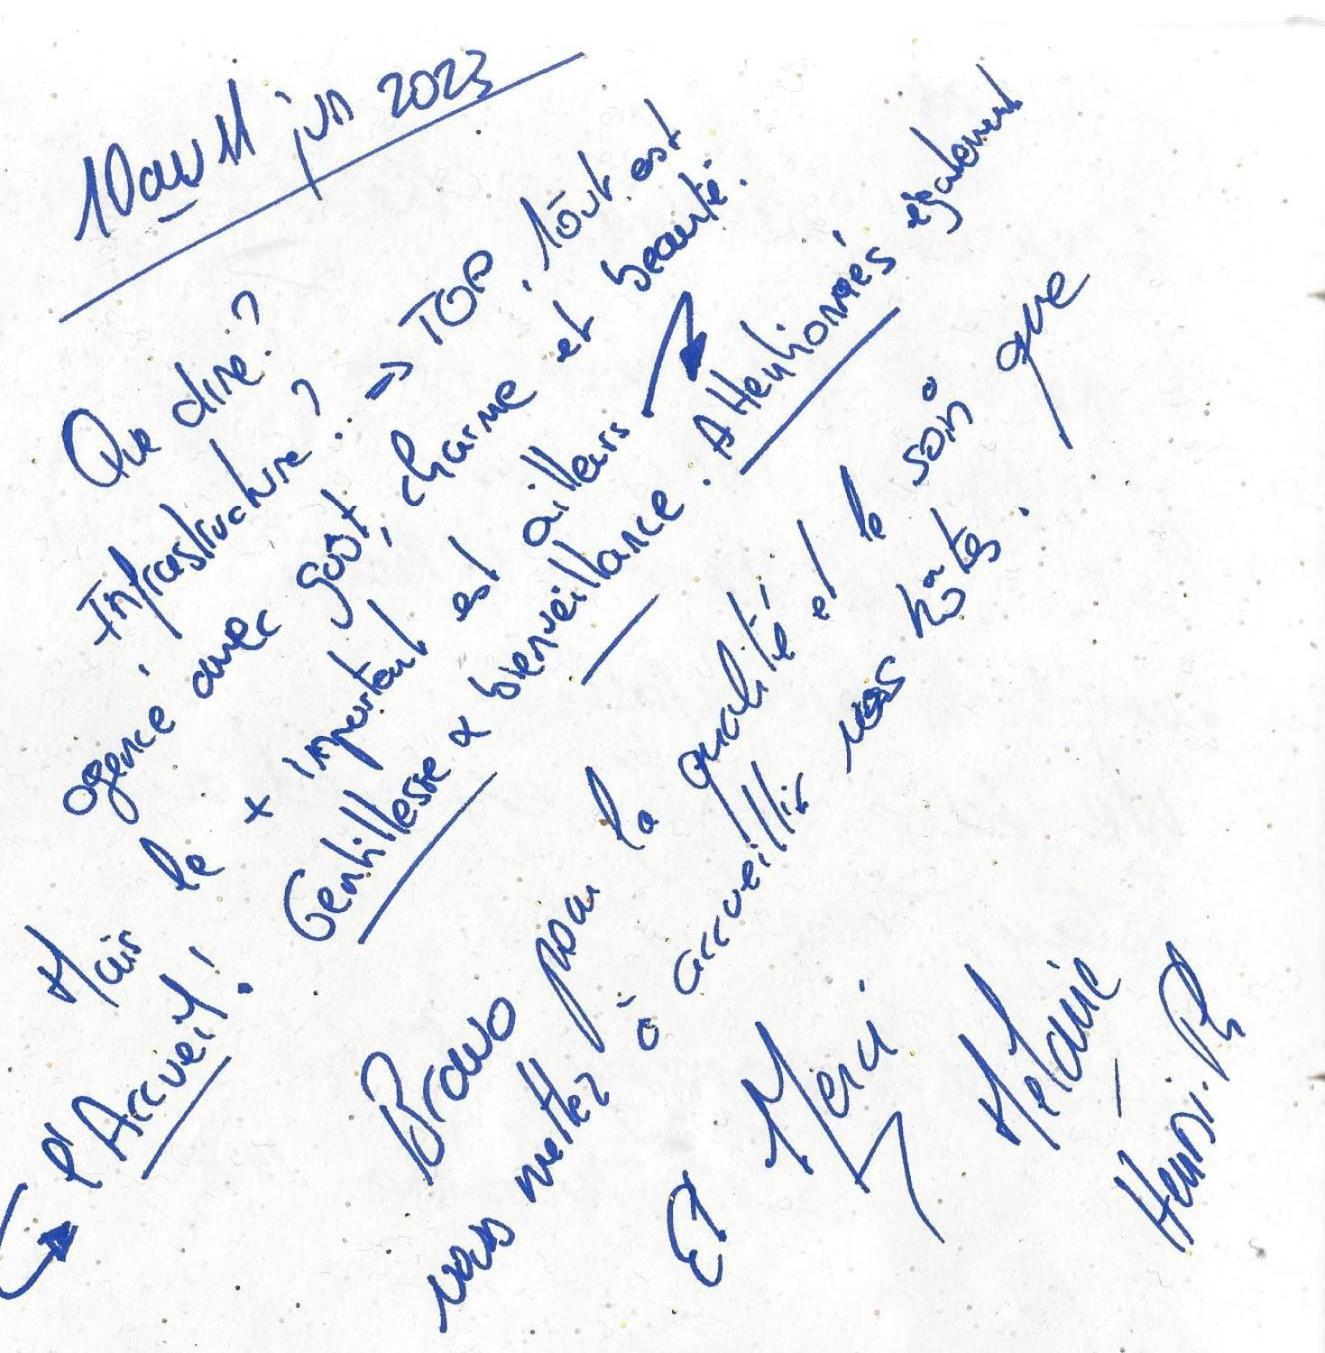 10 au 11 juin 2023
Que dire?
Infrastructure? ... => TOP, tout est
agencé avec goût, charme et beauté.
Mais le + important est ailleurs
l'Accueil! Gentillesse & bienveillance. Attentionnés également
Bravo pour la qualité et le soin que
vous mettez à accueillir vos hôtes.
Et Merci
Mélanie
Henri-Ph